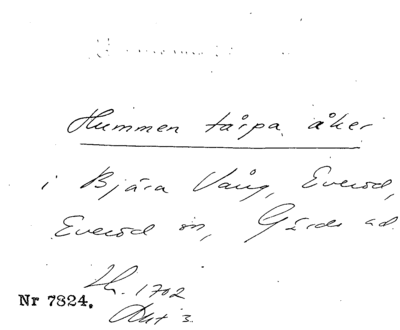 Hummen tårpa åker
i Bjära Vång, Everöd,
Everöd sn, Gärds hd.
Lh. 1702
Nr 7824.
Akt 3.